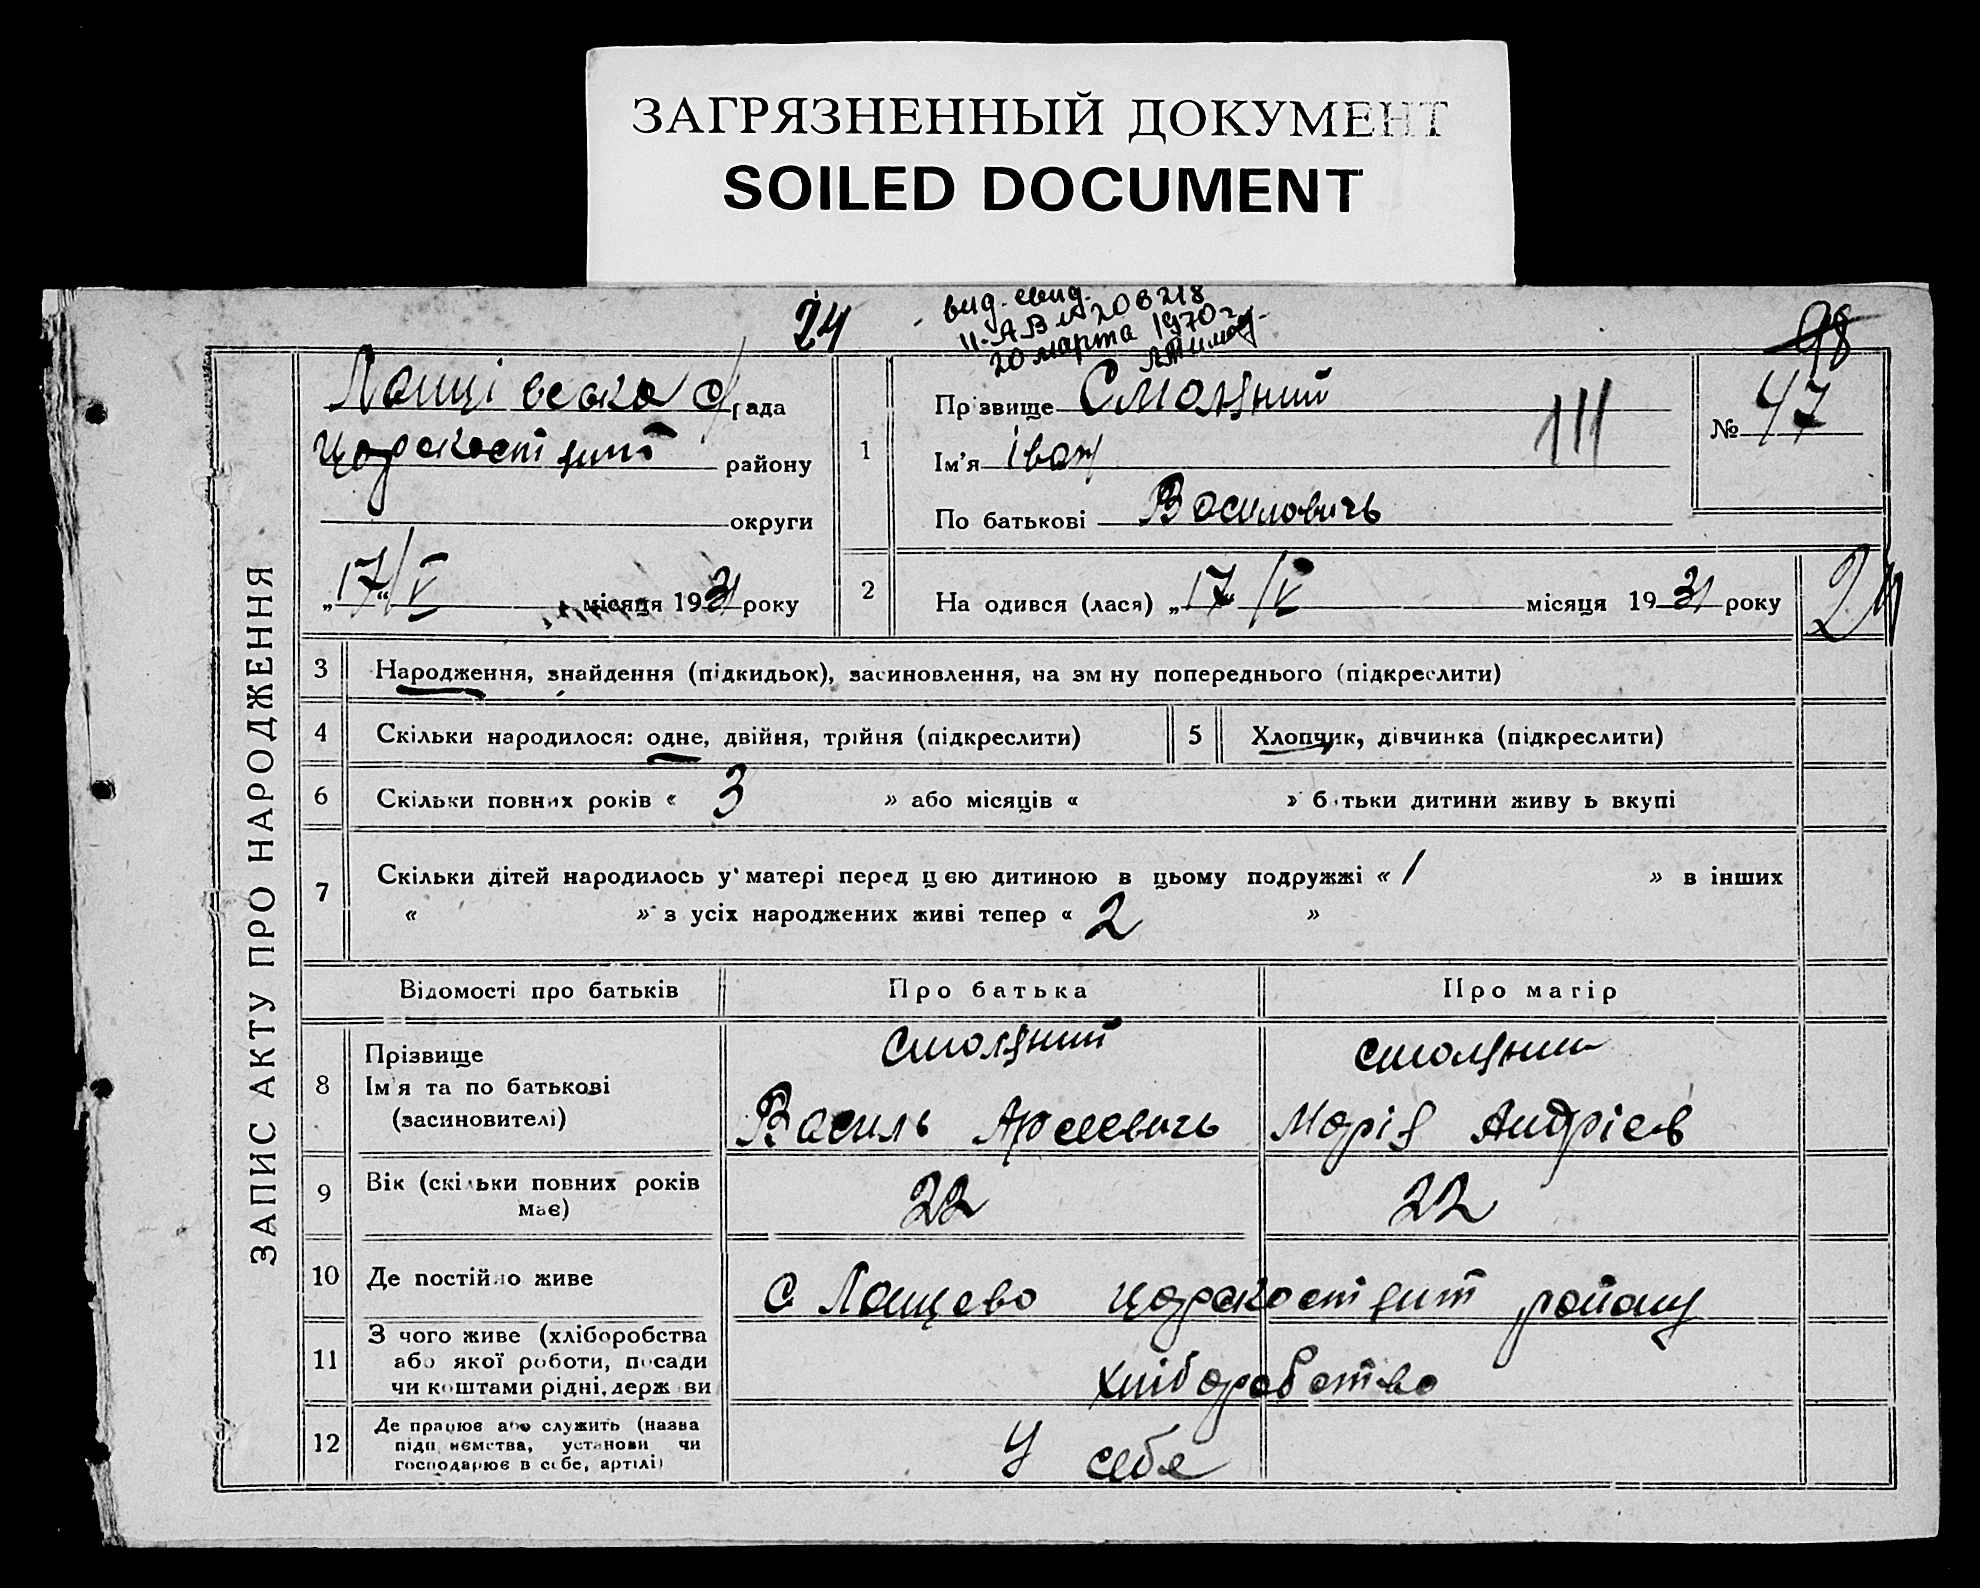 ЗАГРЯЗНЕННЫЙ ДОКУМЕНТ
SOILED DOCUMENT
24
вид. свид.
II-АВ № 206218
20 марта 1970 г.
98
ЗАПИС АКТУ ПРО НАРОДЖЕННЯ
рада
району
округи
„17“/V місяця 1931 року
1
Прізвище Смоляний
Ім'я Іван
По батькові Василовичь
111
№ 47
2
На одився (лася) „17 /V місяця 1931 року
24
3 Народження, знайдення (підкидьок), засиновлення, на зм ну попереднього (підкреслити)
4 Скільки народилося: одне, двійня, трійня (підкреслити)
5 Хлопчик, дівчинка (підкреслити)
6 Скільки повних років « 3 » або місяців « » б тьки дитини живу ь вкупі
7 Скільки дітей народилось у матері перед цією дитиною в цьому подружжі « 1 » в інших
« » з усіх народжених живі тепер « 2 »
Відомості про батьків Про батька Про матір
8 Прізвище
Ім'я та по батькові
(засиновителі)
Смоляний
Василь
Смоляний
Марія Андріев
9 Вік (скільки повних років
має)
22 22
10 Де постійно живе
с Лащево району
11 З чого живе (хліборобства
або якої роботи, посади
чи коштами рідні, держ ви
хліборобство
12 Де працює або служить (назва
підп иємства, установи чи
господарює в себе, артілі)
У себе